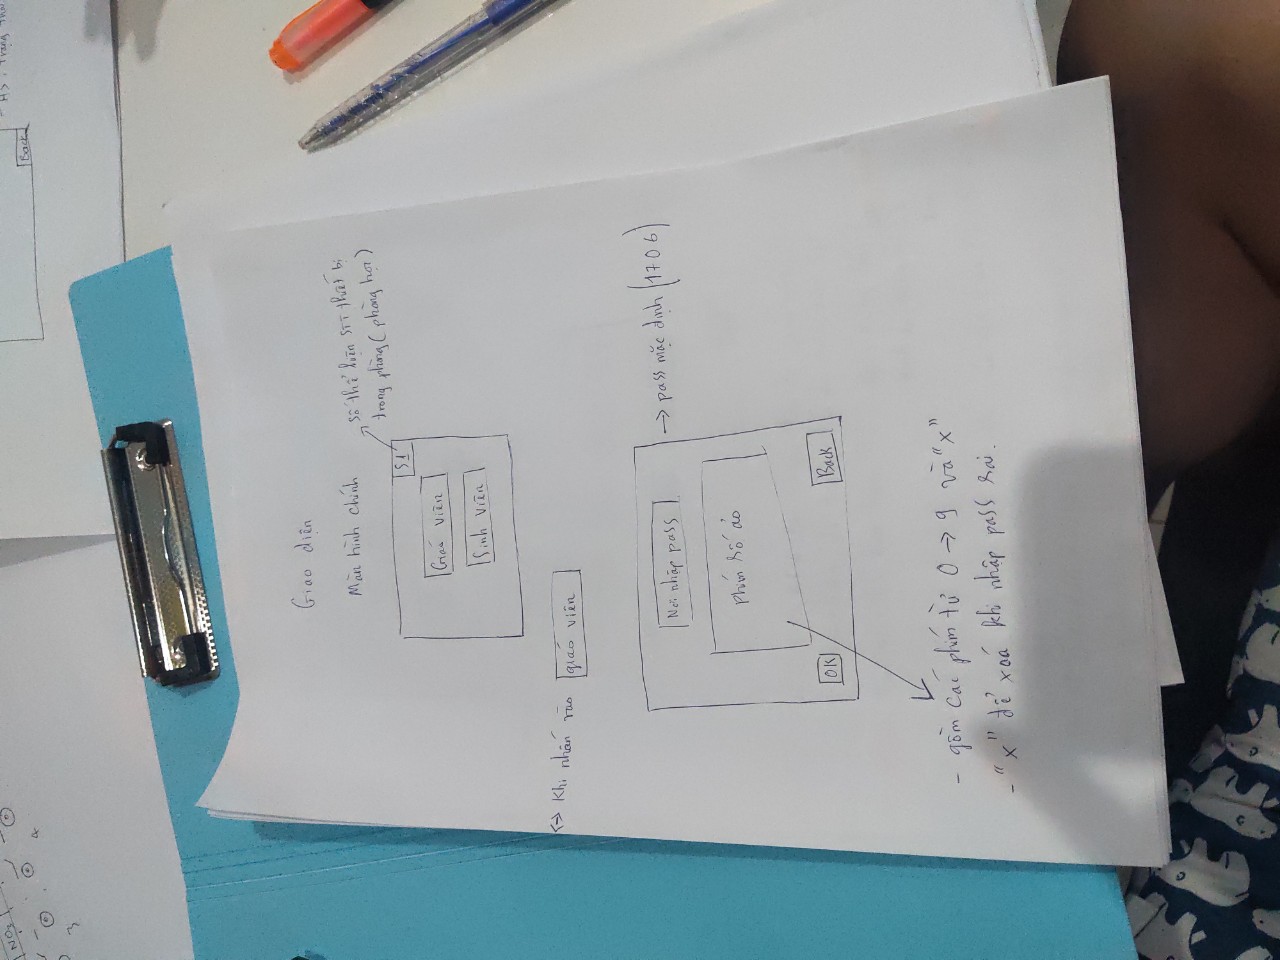 NO3
3
4
Back
- HS : trạng thá
Giao diện
Màn hình chính
số thể hiện STT thiết bị
trong phòng ( phòng học )
S1
Giáo viên
Sinh viên
<-> Khi nhấn vào giáo viên
Nơi nhập pass
-> pass mặc định (1706)
phím số ảo
OK
Back
- gồm các phím từ 0 -> 9 và "x"
- "x" để xoá khi nhập pass sai.